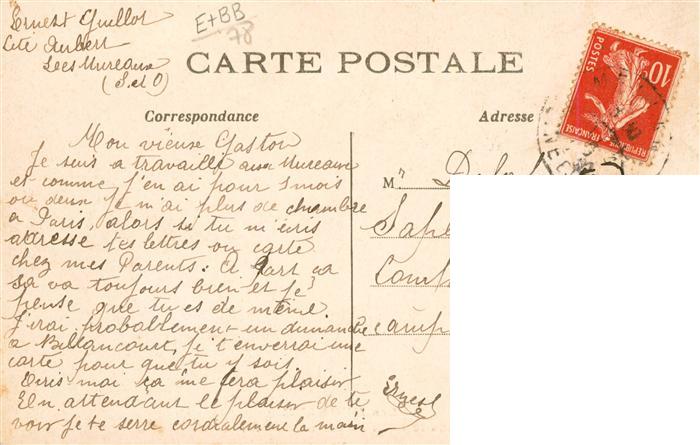 Ernest Guillot
Cité Aubert
Les Mureaux
(S. et O)
E+BB
78
CARTE POSTALE
10
POSTES
REPUBLIQUE FRANÇAISE
Correspondance
Mon vieux Gaston
Je suis a travaille aux Mureaux
et comme j'en ai pour 1 mois
ou deux je n'ai plus de chambre
a Paris, alors si tu m'écris
adresse tes lettres ou carte
chez mes Parents. A part ça
sa va toujours bien et je
pense que tu es de même.
J'irai probablement un dimanche
a Billancourt, je t'enverrai une
carte pour que tu y sois
Ecris moi ça me fera plaisir
En attendant le plaisir de te
voir je te serre cordialement la main
Ernest
Adresse
Mr
Sape